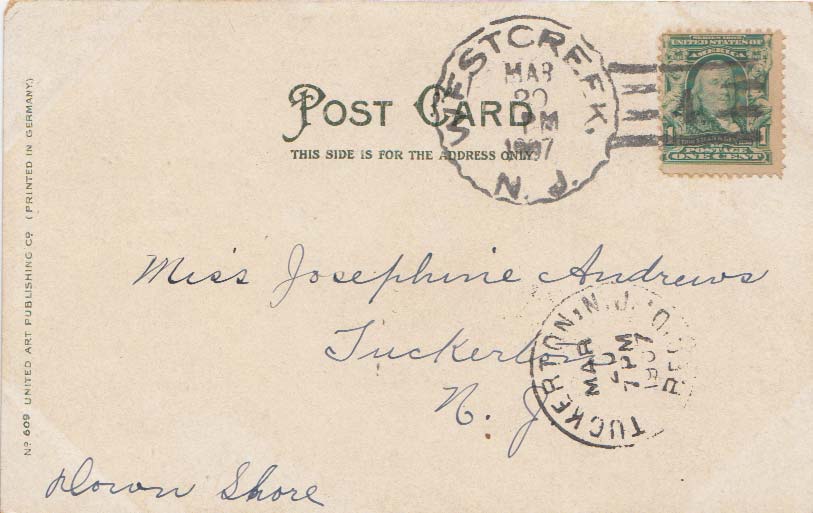 POST CARD
THIS SIDE IS FOR THE ADDRESS ONLY.
WESTCREEK.
MAR
20
PM
1907
N. J.
SERIES 1902
UNITED STATES OF
1 1
POSTAGE
ONE CENT
Miss Josephine Andrews
Tuckerton
N. J.
TUCKERTON, N.J.
MAR
20
7 PM
1907
REC'D.
Down Shore
No 609 UNITED ART PUBLISHING Co (PRINTED IN GERMANY.)